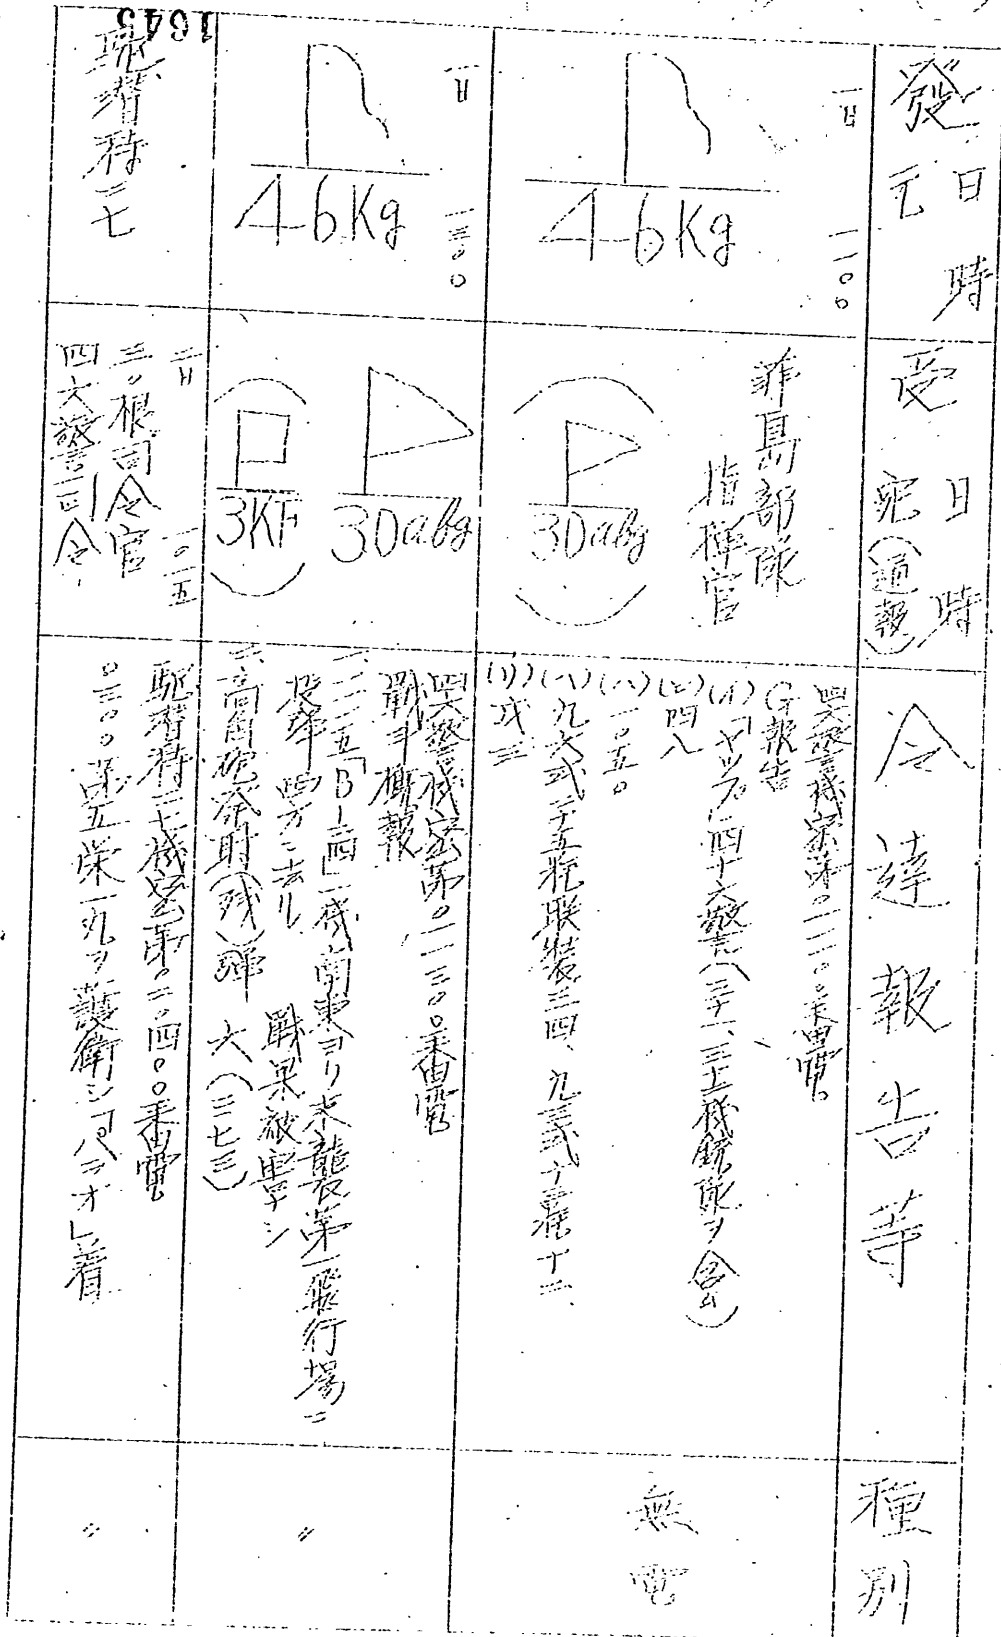 日時
發元
日時
受宛(通報)
令達報告等
種別
一日 一一〇〇
46Kg
非島部隊
指揮官
3Dabg
四六警機密第〇一一一〇〇番電
G報告
(イ)「ヤップ」四十六警(三十一、三十五機銃隊ヲ含ム)
(ロ)四八
(ハ)一〇五〇
(八)九六式二十五粍聯装三四、九三式十三粍十二
(リ)弐三
無電
一日 一三〇〇
46Kg
3Dabg
(3KF)
四六警機密第〇一一三〇〇番電
戰ヨ概報
一、一一二五「B-24」一機南東ヨリ来襲第一飛行場ニ
投弾 四方ニ去ル 戰果被害ナシ
二、高角砲發射(残)彈 六(二七三)
〃
駆潜特二七
二日 一〇一五
三〇根司令官
四六警司令
駆潜特二七機密第〇二〇四〇〇番電
〇三〇〇第五栄丸ヲ護衛シ「パラオ」着
〃
1645